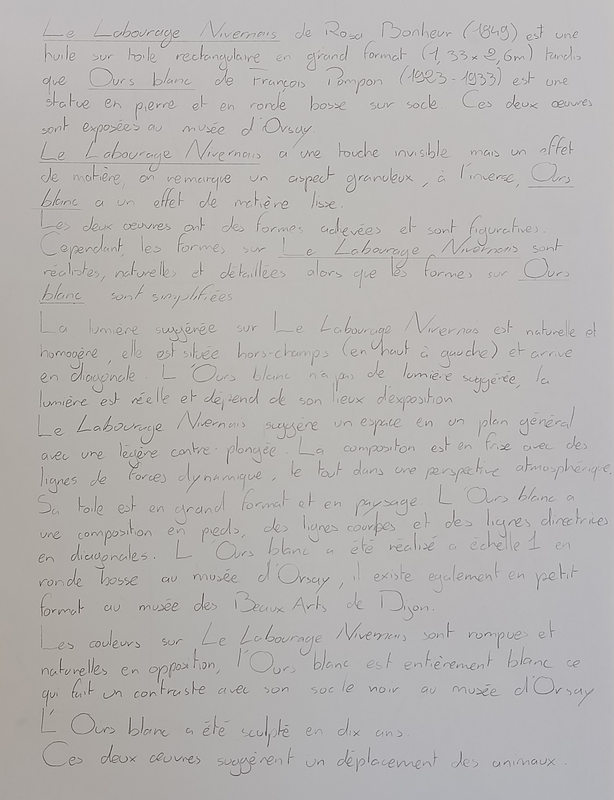 Le Labourage Nivernais de Rosa Bonheur (1849) est une
huile sur toile rectangulaire en grand format (1,33 x 2,6m) tandis
que Ours blanc de François Pompon (1923-1933) est une
statue en pierre et en ronde bosse sur socle. Ces deux œuvres
sont exposées au musée d'Orsay.
Le Labourage Nivernais a une touche invisible mais un effet
de matière, on remarque un aspect granuleux, à l'inverse, Ours
blanc a un effet de matière lisse.
Les deux œuvres ont des formes achevées et sont figuratives.
Cependant, les formes sur Le Labourage Nivernais sont
réalistes, naturelles et détaillées alors que les formes sur Ours
blanc sont simplifiées
La lumière suggérée sur Le Labourage Nivernais est naturelle et
homogène, elle est située hors-champs (en haut à gauche) et arrive
en diagonale. L'Ours blanc n'a pas de lumière suggérée, la
lumière est réelle et dépend de son lieux d'exposition
Le Labourage Nivernais suggère un espace en un plan général
avec une légère contre-plongée. La composition est en frise avec des
lignes de forces dynamique, le tout dans une perspective atmosphérique.
Sa toile est en grand format et en paysage. L'Ours blanc a
une composition en pieds, des lignes courbes et des lignes directrices
en diagonales. L'Ours blanc a été réalisé a échelle 1 en
ronde bosse au musée d'Orsay, il existe également en petit
format au musée des Beaux Arts de Dijon.
Les couleurs sur Le Labourage Nivernais sont rompues et
naturelles en opposition, l'Ours blanc est entièrement blanc ce
qui fait un contraste avec son socle noir au musée d'Orsay
L'Ours blanc a été sculpté en dix ans.
Ces deux œuvres suggèrent un déplacement des animaux.